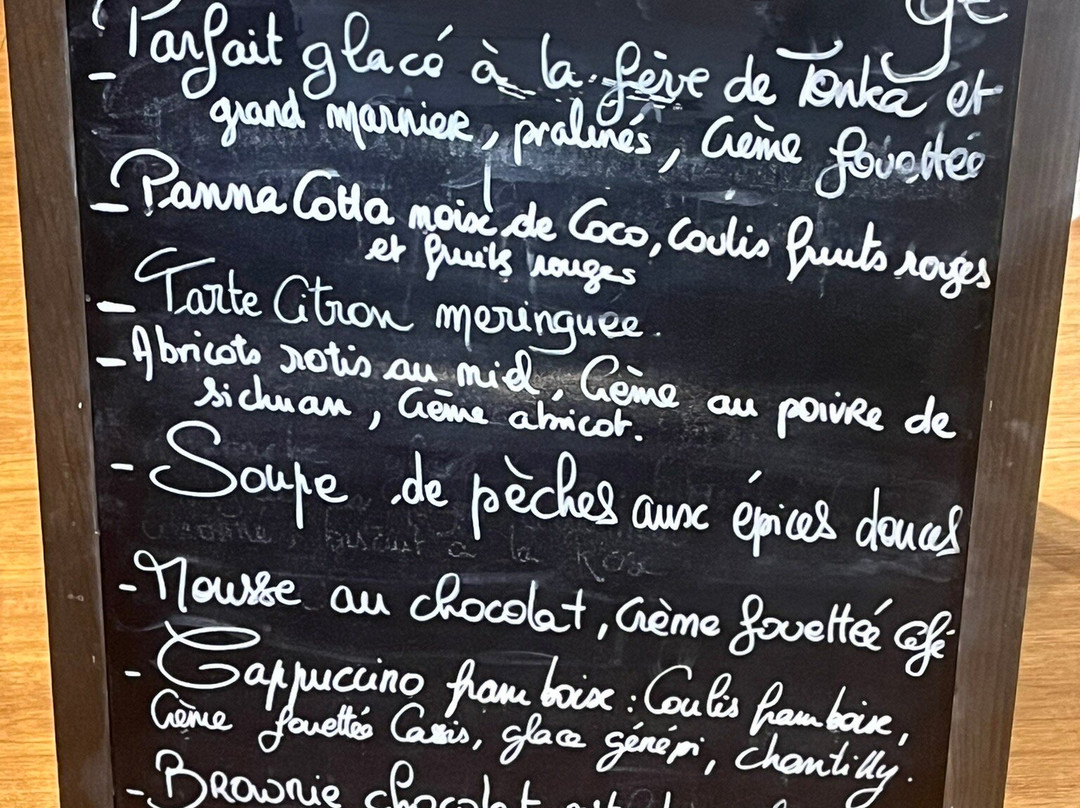 - Parfait glacé à la fève de Tonka et
grand marnier, pralinés, Crème fouettée
- Panna Cotta noix de Coco, coulis fruits rouges
et fruits rouges
- Tarte Citron meringuee.
- Abricots rotis au miel, Crème au poivre de
sichuan, Crème abricot.
- Soupe de pèches aux épices douces
- Mousse au chocolat, Crème fouettée Café
- Cappuccino framboise : Coulis framboise,
Crème fouettée Cassis, glace génépi, chantilly.
- Brownie chocolat